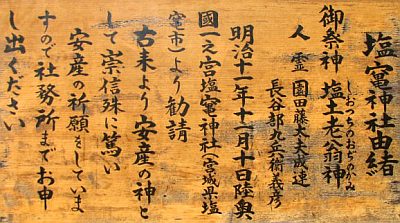 塩竈神社由緒
御祭神 塩土老翁神
しおつちのおぢのかみ
人霊 園田藤太夫成連
長谷部九兵衛義彦
明治十一年十一月十日陸奥
國一之宮塩竈神社(宮城県塩
竈市)より勧請
古来より安産の神と
して崇信殊に篤い
安産の祈願をしていま
すので社務所までお申
し出ください